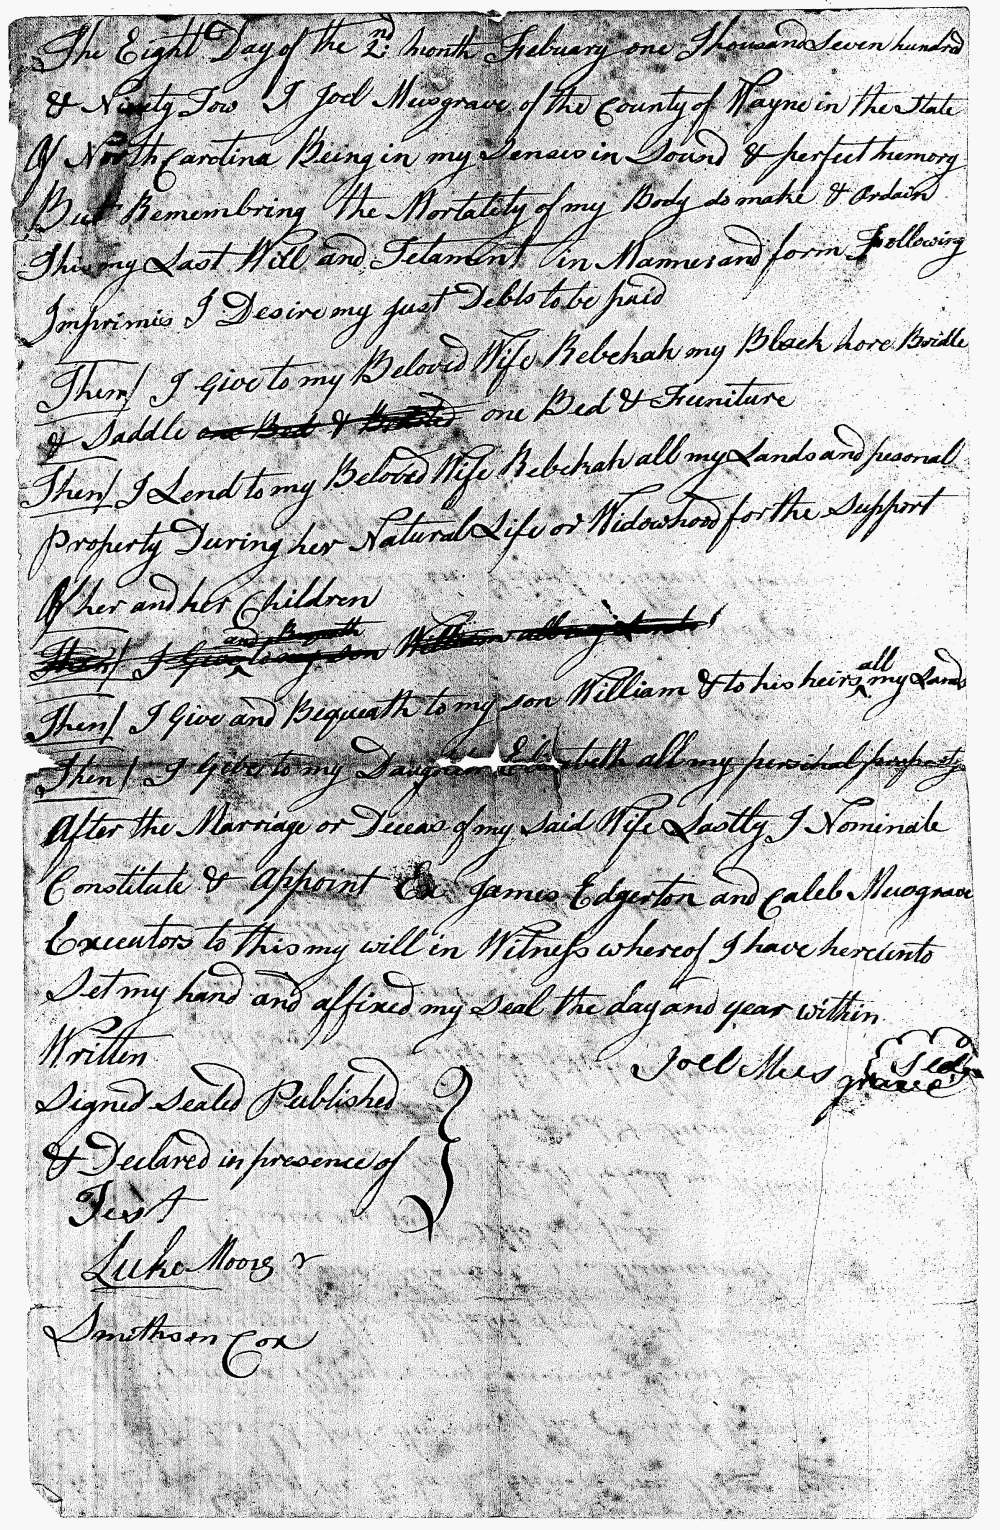 The Eight Day of the 2nd: month Febuary one Thousand Seven hundred
& Ninety Tow I Joel Musgrave of the County of Wayne in the State
Of North Carolina Being in my Senses in Sound & perfect memory
But Remembring the Mortality of my Body do make & Ordain
This my Last Will and Tetament in Manner and form Following
Imprimis I Desire my just Debts to be paid
Them/ I Give to my Beloved Wife Rebekah my Black hore Bridle
& Saddle one Bed & Bedsted one Bed & Funiture
Them/ I Lend to my Beloved Wife Rebekah all my Lands and pesonal
Property During her Natural Life or Widowhood for the Support
Of her and her Children
Them/ I Give and Bequeath to my son William all my Lands
Them/ I Give and Bequeath to my son William & to his heirs all my Lands
Them/ I Give to my Elizabeth all my personal property
After the Marriage or Deceas of my said Wife Lastly I Nominate
Constitute & Appoint Ex James Edgerton and Caleb Musgrave
Executors to this my will in Witness whereof I have hereunto
Set my hand and affixed my Seal the day and year within
Written
Joel Musgrave Seal
Signed Sealed Published
& Declared in presence of
Test
Luke Moore
Smithson Cox